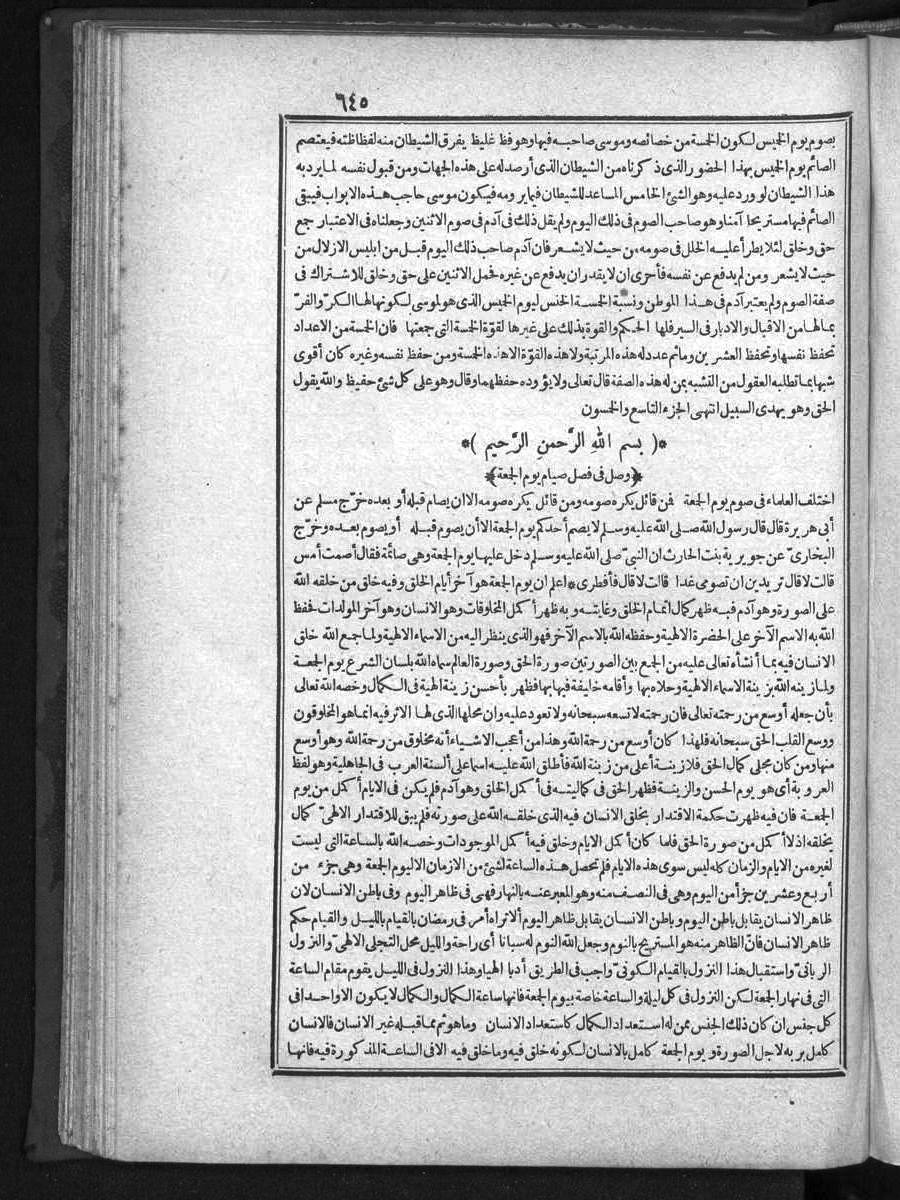 ٦٤٥
يصوم يوم الخميس لكون الخمسة من خصائصه وموسى صاحبه فيها وهو فظ غليظ يفرق الشيطان منه لفظاظته فيعتصم
الصائم يوم الخميس بهذا الحضور الذى ذكرناه من الشيطان الذى أرصد له على هذه الجهات ومن قبول نفسه لما يرد به
هذا الشيطان لو ورد عليه وهو الشئ الخامس المساعد للشيطان فيما يرومه فيكون موسى حاجب هذه الابواب فيبقى
الصائم فيها مستريحا آمنا وهو صاحب الصوم فى ذلك اليوم ولم يقل ذلك فى آدم فى صوم الاثنين وجعلناه فى الاعتبار جمع
حق وخلق لئلا يطرأ عليه الخلل فى صومه من حيث لا يشعر فان آدم صاحب ذلك اليوم قبل من ابليس الازلال من
حيث لا يشعر ومن لم يدفع عن نفسه فأحرى ان لا يقدر ان يدفع عن غيره فحمل الاثنين على حق وخلق للاشتراك فى
صفة الصوم ولم يعتبر آدم فى هذا الموطن ونسبة الخمسة الخنس ليوم الخميس الذى هو لموسى لكونها لها الكرّ والفرّ
بما لها من الاقبال والادبار فى السير فلها الحكم والقوة بذلك على غيرها لقوّة الخمسة التى جمعتها فان الخمسة من الاعداد
تحفظ نفسها وتحفظ العشرين وما ثم عدد له هذه المرتبة ولا هذه القوّة الا هذه الخمسة ومن حفظ نفسه وغيره كان أقوى
شبها بما تطلبه العقول من التشبه بمن له هذه الصفة قال تعالى ولا يؤوده حفظهما وقال وهو على كل شئ حفيظ والله يقول
الحق وهو يهدى السبيل انتهى الجزء التاسع والخمسون
*( بسم الله الرَّحمنِ الرَّحيم )*
﴿وصل فى فصل صيام يوم الجمعة﴾
اختلف العلماء فى صوم يوم الجمعة فمن قائل يكره صومه ومن قائل يكره صومه الا ان يصام قبله أو بعده خرّج مسلم عن
أبى هريرة قال قال رسول الله صلى الله عليه وسلم لا يصم أحدكم يوم الجمعة الا أن يصوم قبله أو يصوم بعده وخرّج
البخارىّ عن جويرية بنت الحارث ان النبىّ صلى الله عليه وسلم دخل عليها يوم الجمعة وهى صائمة فقال أصمت أمس
قالت لا قال تريدين ان تصومى غدا قالت لا قال فأفطرى * اعلم ان يوم الجمعة هو آخر أيام الخلق وفيه خلق من خلقه الله
على الصورة وهو آدم فبه ظهر كمال اتمام الخلق وغايته وبه ظهر أكمل المخلوقات وهو الانسان وهو آخر المولدات فحفظ
الله به الاسم الآخر على الحضرة الالهية وحفظه الله بالاسم الآخر فهو الذى ينظر اليه من الاسماء الالهية ولما جمع الله خلق
الانسان فيه بما أنشأه تعالى عليه من الجمع بين الصورتين صورة الحق وصورة العالم سماه الله بلسان الشرع يوم الجمعة
ولما زينه الله بزينة الاسماء الالهية وحلاه بها وأقامه خليفة فيها بها فظهر بأحسن زينة الهية فى الكمال وخصه الله تعالى
بأن جعله أوسع من رحمته تعالى فان رحمته لا تسعه سبحانه ولا تعود عليه وان محلها الذى لها الاثر فيه انما هو المخلوقون
ووسع القلب الحق سبحانه فلهذا كان أوسع من رحمة الله وهذا من أعجب الاشياء أنه مخلوق من رحمة الله وهو أوسع
منها ومن كان مجلى كمال الحق فلا زينة أعلى من زينة الله فأطلق الله عليه اسما على ألسنة العرب فى الجاهلية وهو لفظ
العروبة أى هو يوم الحسن والزينة فظهر الحق فى كماليته فى أكمل الخلق وهو آدم فلم يكن فى الايام أكمل من يوم
الجمعة فان فيه ظهرت حكمة الاقتدار بخلق الانسان فيه الذى خلقه الله على صورته فلم يبق للاقتدار الالهىّ كمال
يخلقه اذ لا أكمل من صورة الحق فلما كان أكمل الايام وخلق فيه أكمل الموجودات وخصه الله بالساعة التى ليست
لغيره من الايام والزمان كله ليس سوى هذه الايام فلم تحصل هذه الساعة لشئ من الازمان الا ليوم الجمعة وهى جزء من
أربع وعشرين جزأ من اليوم وهى فى النصف منه وهو المعبر عنه بالنهار فهى فى ظاهر اليوم وفى باطن الانسان لان
ظاهر الانسان يقابل باطن اليوم وباطن الانسان يقابل ظاهر اليوم ألا تراه أمر فى رمضان بالقيام بالليل والقيام حكم
ظاهر الانسان فانّ الظاهر منه هو المستريح بالنوم وجعل الله النوم له سباتا أى راحة والليل محل التجلى الالهىّ والنزول
الربانىّ واستقبال هذا النزول بالقيام الكونىّ واجب فى الطريق أدبا الهيا وهذا النزول فى الليل يقوم مقام الساعة
التى فى نهار الجمعة لكن النزول فى كل ليلة والساعة خاصة بيوم الجمعة فانها ساعة الكمال والكمال لا يكون الا واحدا فى
كل جنس ان كان ذلك الجنس ممن له استعداد الكمال كاستعداد الانسان وما هو ثم مما قبله غير الانسان فالانسان
كامل بربه لاجل الصورة ويوم الجمعة كامل بالانسان لكونه خلق فيه وما خلق فيه الا فى الساعة المذكورة فيه فانها